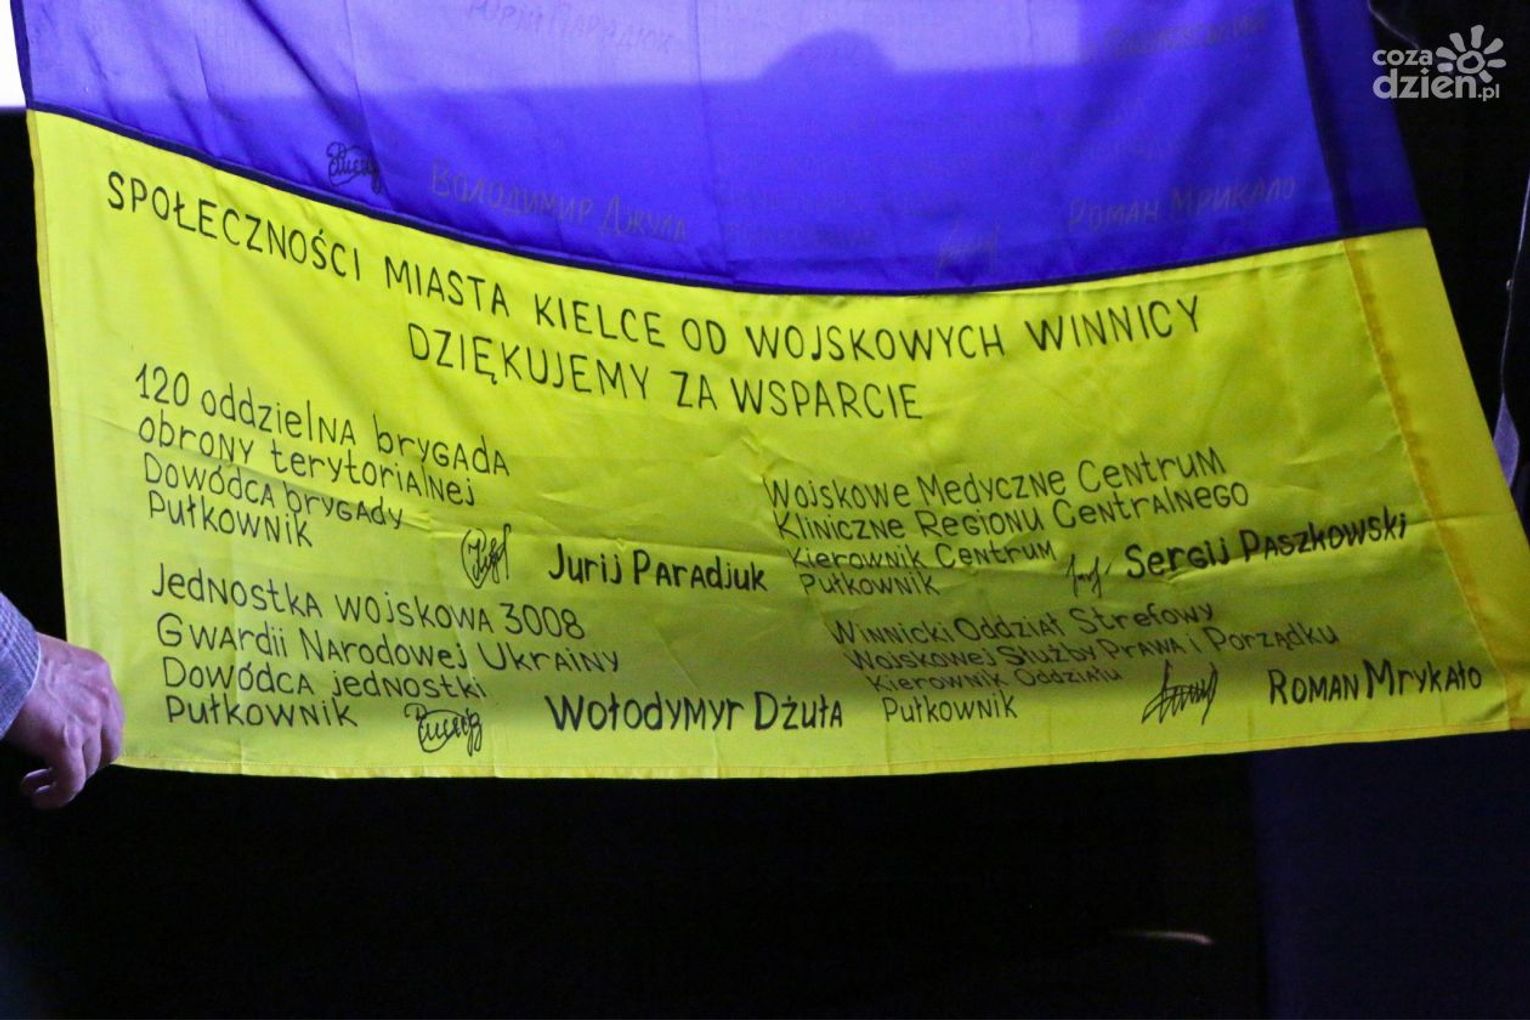 coza
dzień.pl
Юрій Парадюк
Володимир Джула
Роман Мрикало
SPOŁECZNOŚCI MIASTA KIELCE OD WOJSKOWYCH WINNICY
DZIĘKUJEMY ZA WSPARCIE
120 oddzielna brygada
obrony terytorialnej
Dowódca brygady
Pułkownik
Jurij Paradjuk
Jednostka wojskowa 3008
Gwardii Narodowej Ukrainy
Dowódca jednostki
Pułkownik
Wołodymyr Dżuła
Wojskowe Medyczne Centrum
Kliniczne Regionu Centralnego
Kierownik Centrum
Pułkownik
Sergij Paszkowski
Winnicki Oddział Strefowy
Wojskowej Służby Prawa i Porządku
Kierownik Oddziału
Pułkownik
Roman Mrykało